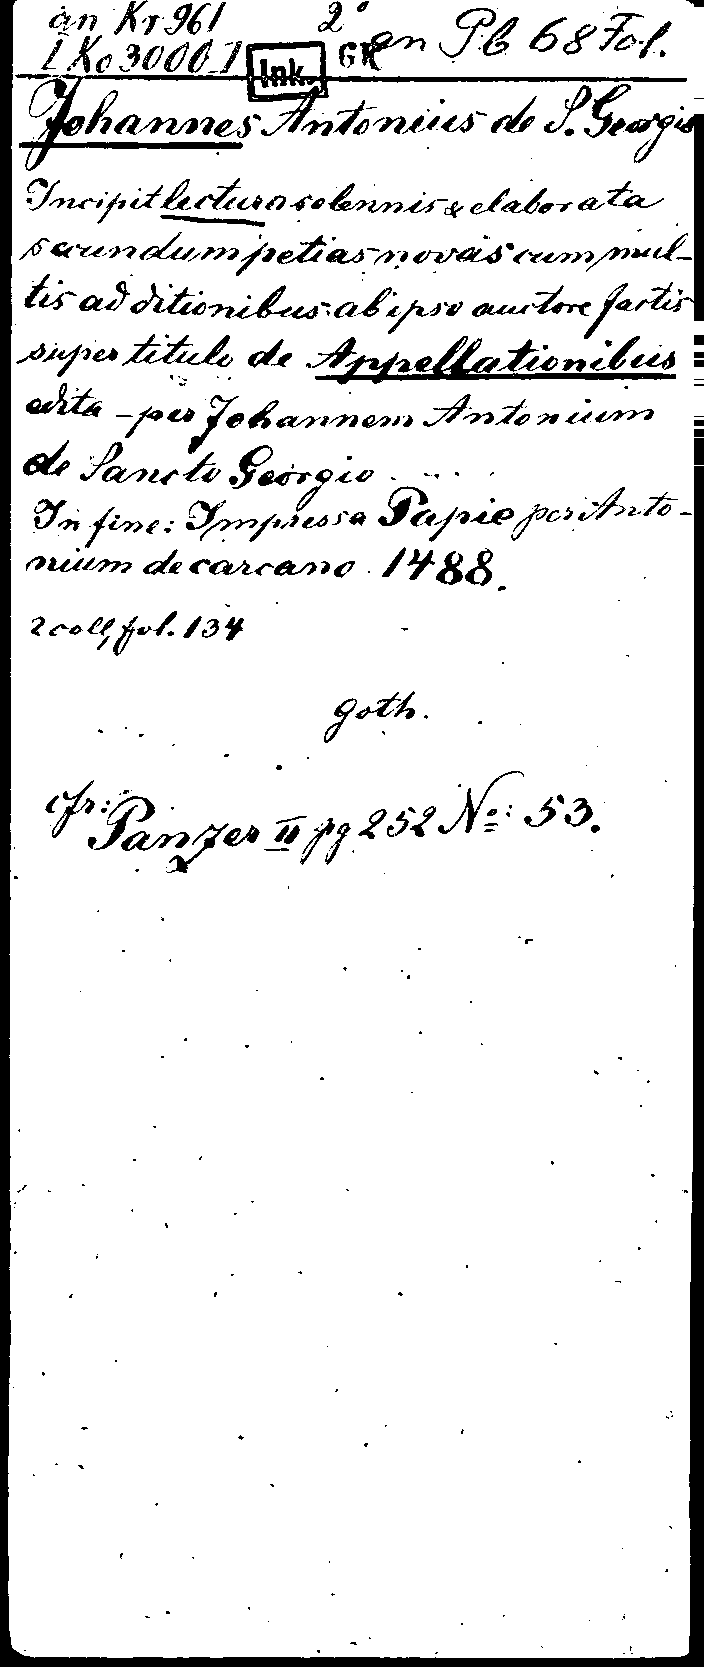 an Kr 961 2° an Pb 68 Fol.
2 Ko 3000 I Ink. GK
Johannes Antonius de S. Georgio
Incipit lectura solennis & elaborata
secundum petias novas cum mul-
tis additionibus ab ipso auctore factis
super titulo de Appellationibus
edita - per Johannem Antonium
de Sancto Georgio . . . . .
In fine: Impressa Papie per Anto-
nium de carcano. 1488.
2 coll, fol. 134
goth.
cfr: Panzer II pg 252 No: 53.